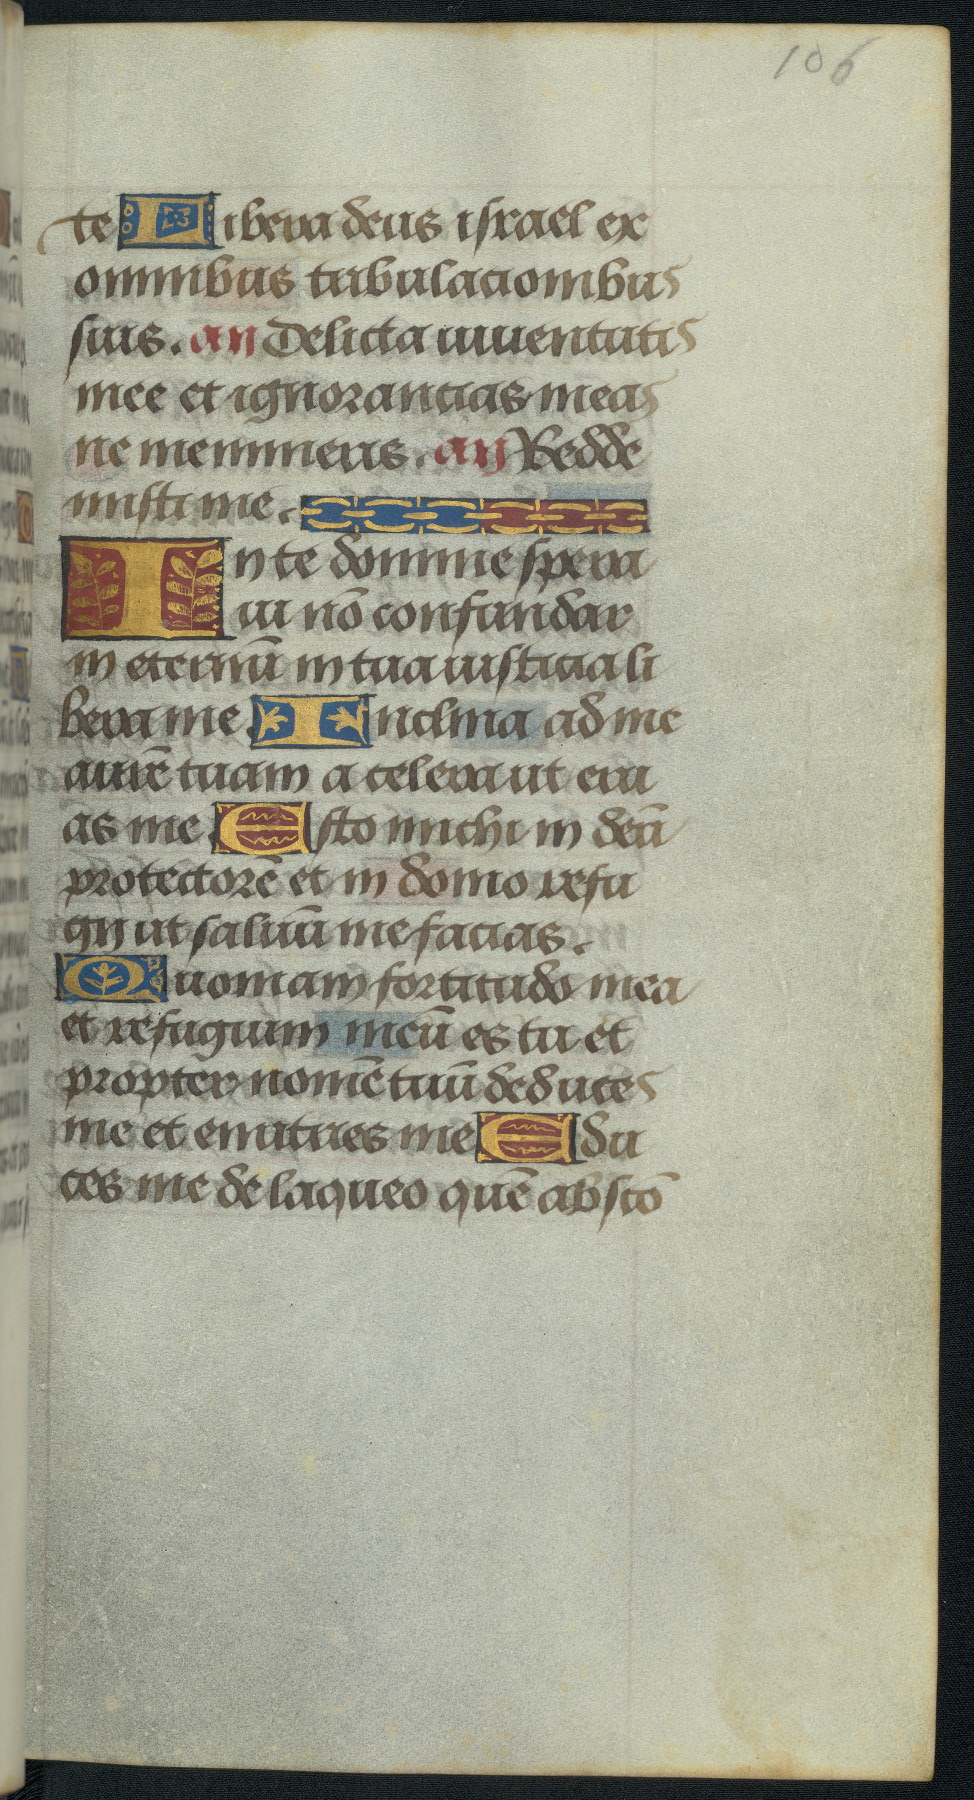 106
te Libera deus israel ex
omnibus tribulacionibus
suis. an Delicta iuuentutis
mee et ignorancias meas
ne memineris. an Redde
nusti me.
In te domine spera
ui nō confundar
in eternū in tua iusticia li
bera me. Inclina ad me
aurē tuam accelera ut eru
as me Esto michi in deū
protectorē et in domo refu
gij ut saluū me facias.
Quoniam fortitudo mea
et refugium meū es tu et
propter nomē tuū deduces
me et enutries me Edu
ces me de laqueo quē abscō